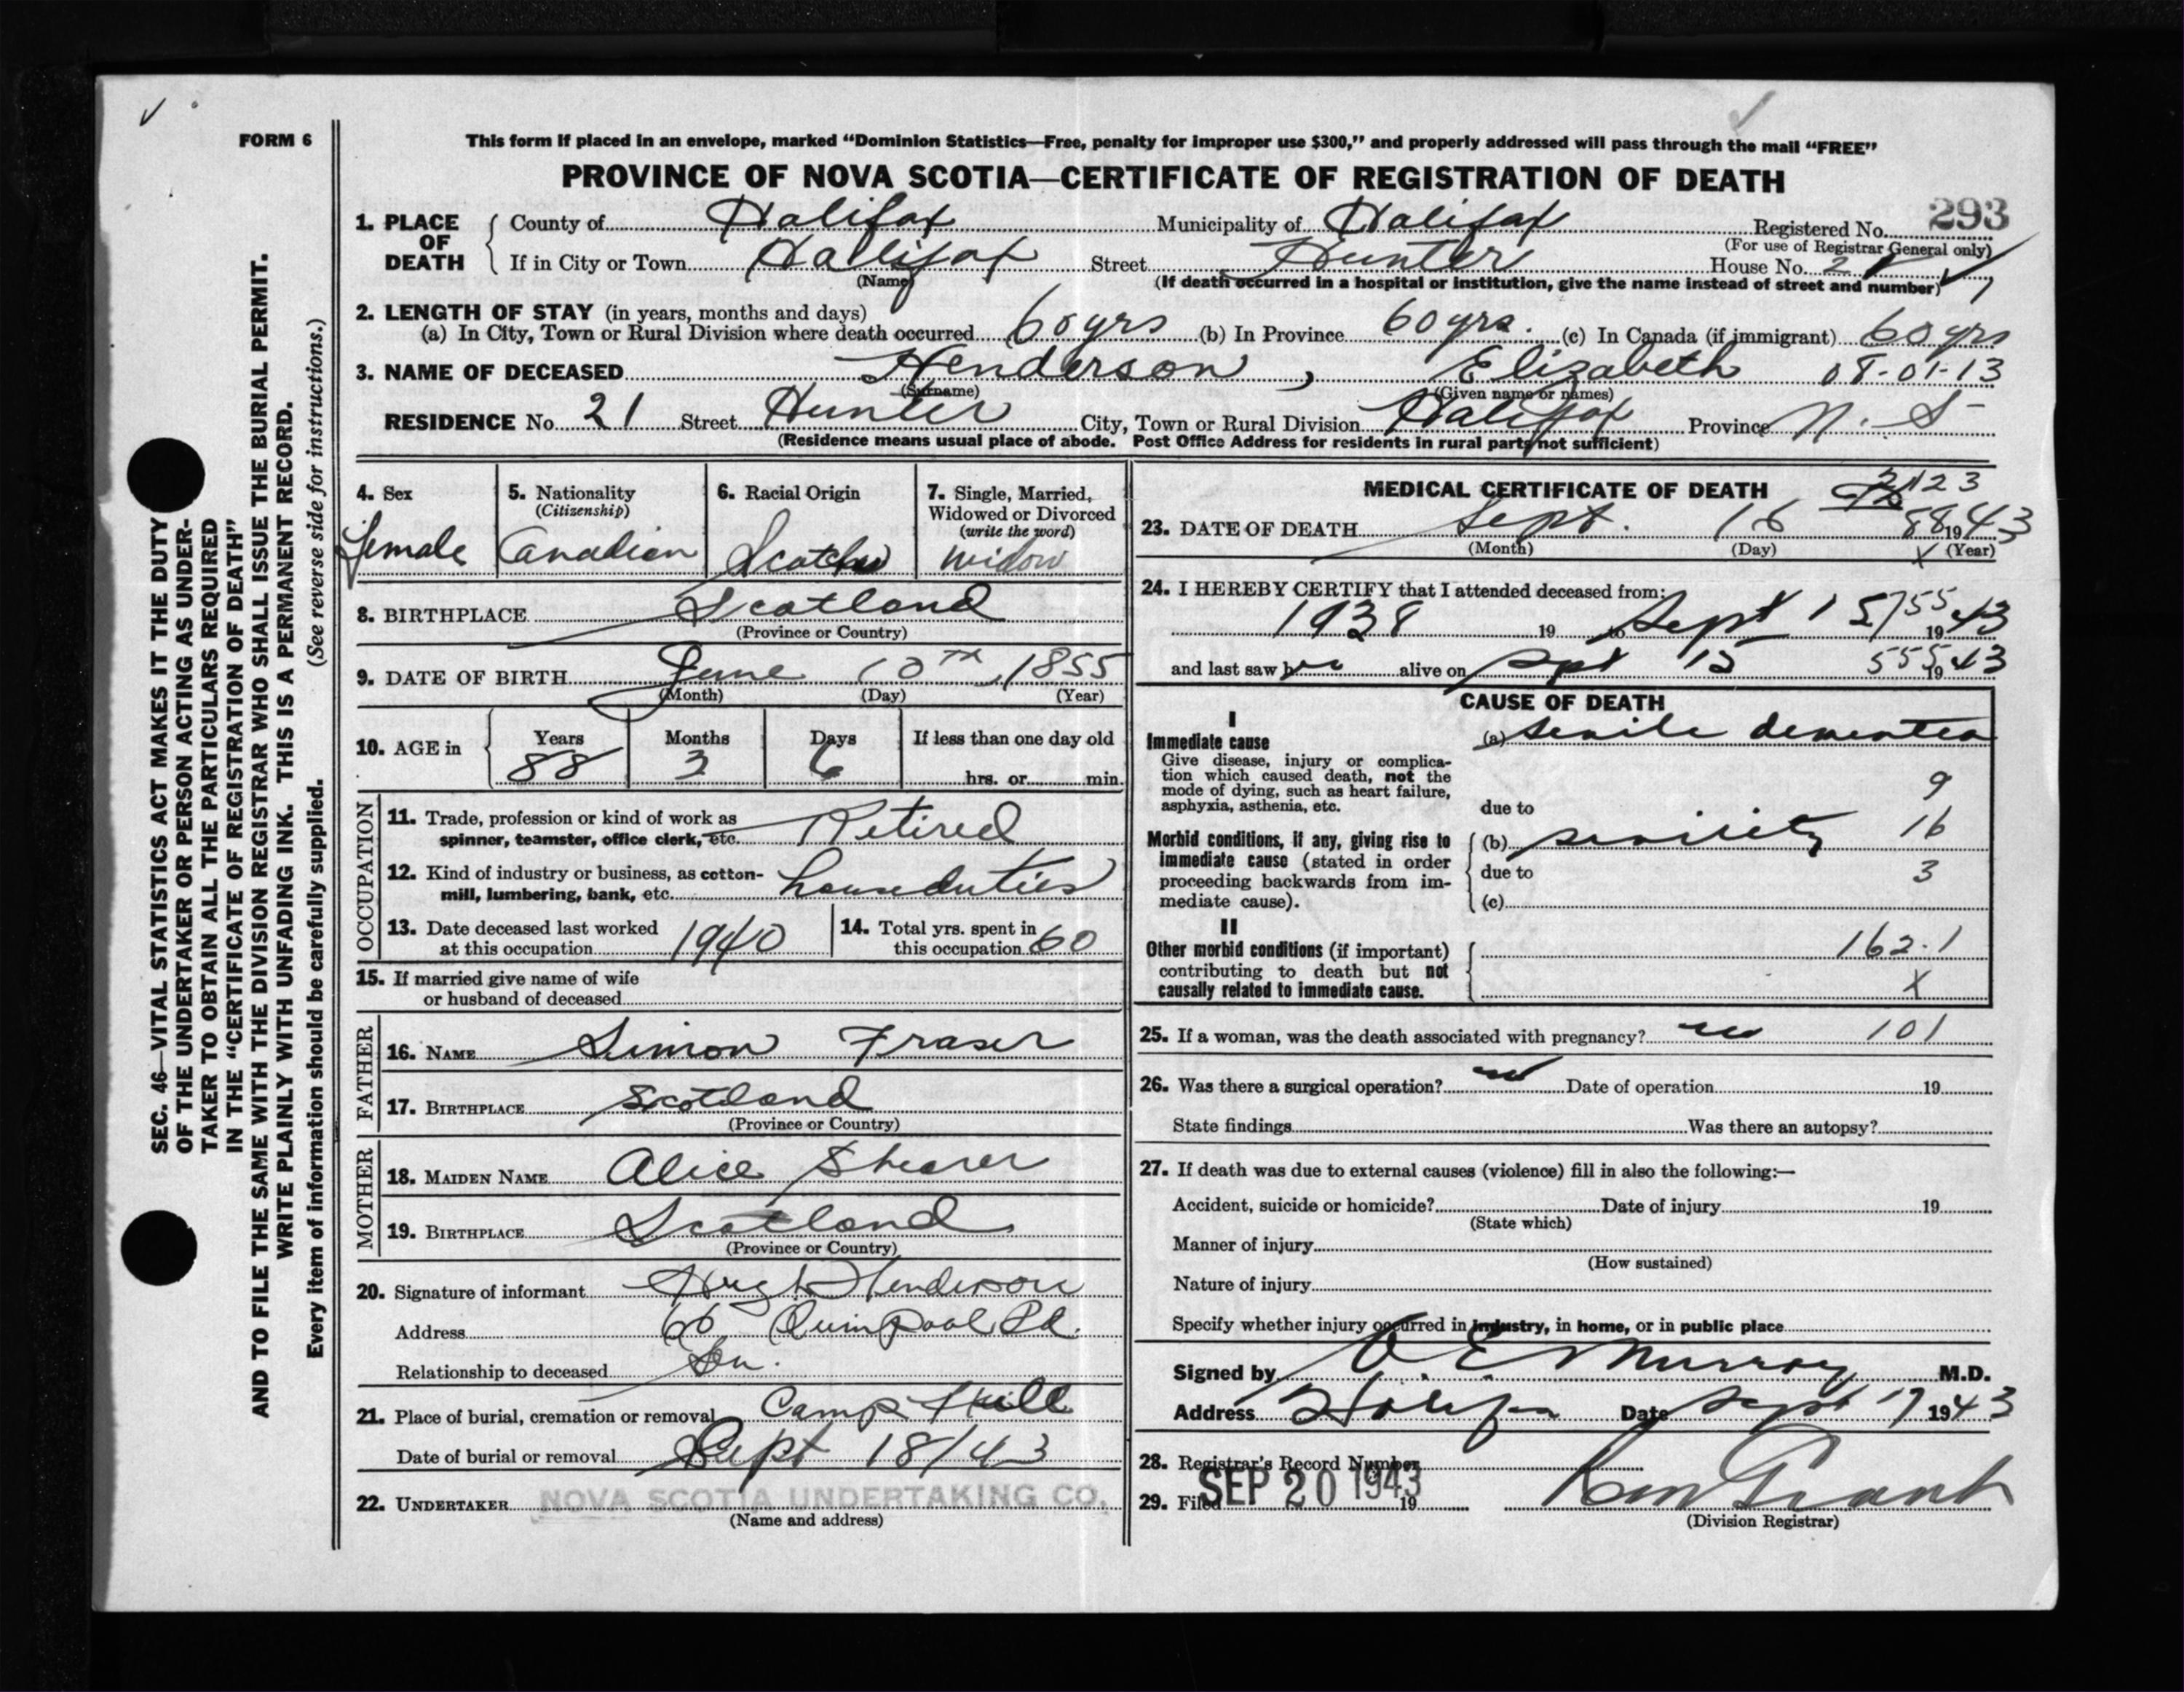 FORM 6
This form if placed in an envelope, marked “Dominion Statistics—Free, penalty for improper use $300,” and properly addressed will pass through the mail “FREE”
PROVINCE OF NOVA SCOTIA—CERTIFICATE OF REGISTRATION OF DEATH
293
1. PLACE OF DEATH County of Halifax Municipality of Halifax Registered No.
(For use of Registrar General only)
If in City or Town Halifax Street Hunter House No. 21
(Name) (If death occurred in a hospital or institution, give the name instead of street and number)
2. LENGTH OF STAY (in years, months and days)
(a) In City, Town or Rural Division where death occurred 60 yrs (b) In Province 60 yrs. (c) In Canada (if immigrant) 60 yrs
3. NAME OF DECEASED Henderson, Elizabeth 08-01-13
(Surname) (Given name or names)
RESIDENCE No. 21 Street Hunter City, Town or Rural Division Halifax Province N. S-
(Residence means usual place of abode. Post Office Address for residents in rural parts not sufficient)
4. Sex Female
5. Nationality (Citizenship) Canadian
6. Racial Origin Scotch
7. Single, Married, Widowed or Divorced (write the word) widow
8. BIRTHPLACE Scotland
(Province or Country)
9. DATE OF BIRTH June 10TH, 1855
(Month) (Day) (Year)
10. AGE in Years 88 Months 3 Days 6 If less than one day old hrs. or min.
OCCUPATION
11. Trade, profession or kind of work as spinner, teamster, office clerk, etc. Retired
12. Kind of industry or business, as cotton-mill, lumbering, bank, etc. houseduties
13. Date deceased last worked at this occupation 1940
14. Total yrs. spent in this occupation 60
15. If married give name of wife or husband of deceased
FATHER
16. NAME Simon Fraser
17. BIRTHPLACE Scotland
(Province or Country)
MOTHER
18. MAIDEN NAME Alice Shearer
19. BIRTHPLACE Scotland
(Province or Country)
20. Signature of informant Hugh Henderson
Address 66 Quinpool Rd.
Relationship to deceased Son.
21. Place of burial, cremation or removal Camp Hill
Date of burial or removal Sept 18/43
22. UNDERTAKER NOVA SCOTIA UNDERTAKING CO.
(Name and address)
MEDICAL CERTIFICATE OF DEATH 2123
23. DATE OF DEATH Sept. 16 88 1943
(Month) (Day) X (Year)
24. I HEREBY CERTIFY that I attended deceased from:
1938 19 to Sept 15 755 1943
and last saw her alive on Sept 15 555 1943
CAUSE OF DEATH
I
Immediate cause (a) senile dementia
Give disease, injury or complication which caused death, not the mode of dying, such as heart failure, asphyxia, asthenia, etc.
9
due to
Morbid conditions, if any, giving rise to immediate cause (stated in order proceeding backwards from immediate cause).
(b) senility 16
due to 3
(c)
II
Other morbid conditions (if important) contributing to death but not causally related to immediate cause.
162.1
X
25. If a woman, was the death associated with pregnancy? no 101
26. Was there a surgical operation? no Date of operation 19
State findings Was there an autopsy?
27. If death was due to external causes (violence) fill in also the following:—
Accident, suicide or homicide? Date of injury 19
(State which)
Manner of injury
(How sustained)
Nature of injury
Specify whether injury occurred in industry, in home, or in public place
Signed by Murray M.D.
Address Halifax Date Sept 17 1943
28. Registrar's Record Number
29. Filed SEP 20 1943 19
(Division Registrar)
SEC. 46—VITAL STATISTICS ACT MAKES IT THE DUTY
OF THE UNDERTAKER OR PERSON ACTING AS UNDER-
TAKER TO OBTAIN ALL THE PARTICULARS REQUIRED
IN THE “CERTIFICATE OF REGISTRATION OF DEATH”
AND TO FILE THE SAME WITH THE DIVISION REGISTRAR WHO SHALL ISSUE THE BURIAL PERMIT.
WRITE PLAINLY WITH UNFADING INK. THIS IS A PERMANENT RECORD.
Every item of information should be carefully supplied. (See reverse side for instructions.)